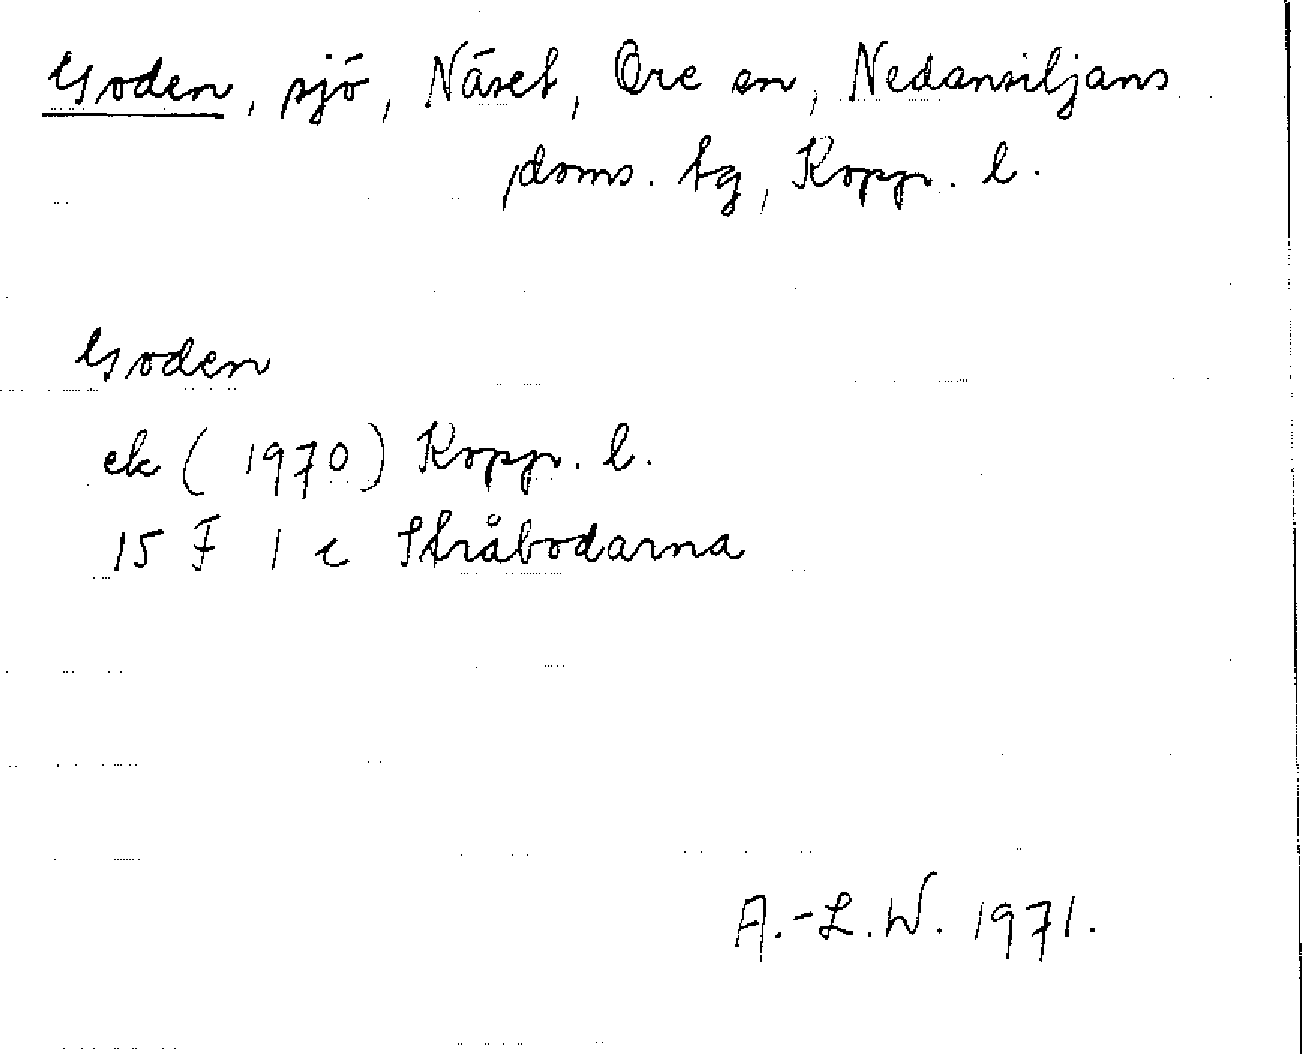 Goden, sjö, Näset, Ore sn, Nedansiljans
doms. tg, Kopp. l.
Goden
ek (1970) Kopp. l.
15 F 1 c Stråbodarna
A.-L.W. 1971.